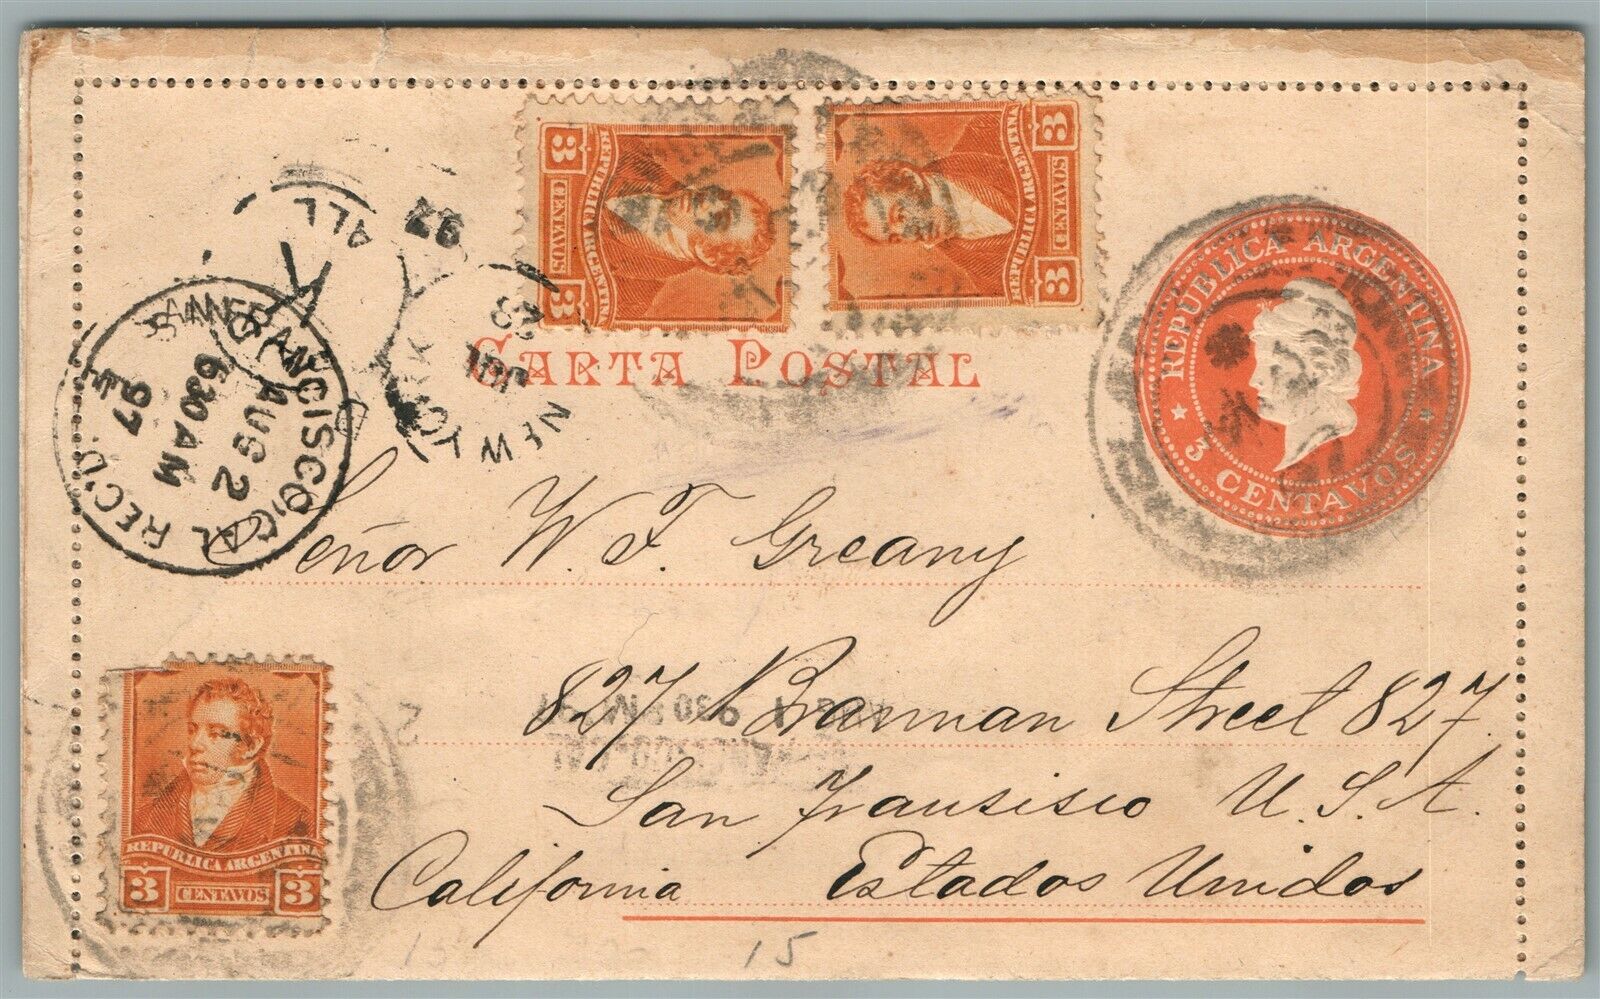 3 REPUBLICA ARGENTINA 3
CENTAVOS
3 REPUBLICA ARGENTINA 3
CENTAVOS
REPUBLICA ARGENTINA
3 CENTAVOS
CARTA POSTAL
ALL
NEW YORK
97
SAN FRANCISCO, CAL
AUG 2
630 AM
97
REC'D.
Señor W. F. Greany
827 Brannan Street 827.
San Fransisco U. S. A.
California Estados Unidos
9 30 PM
REPUBLICA ARGENTINA
3 CENTAVOS 3
15